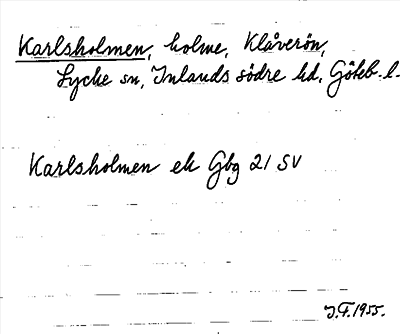 Karlsholmen, holme, Klåverön,
Lycke sn, Inlands södre hd, Göteb. l.
Karlsholmen ek Gbg 21 SV
J.F. 1955.